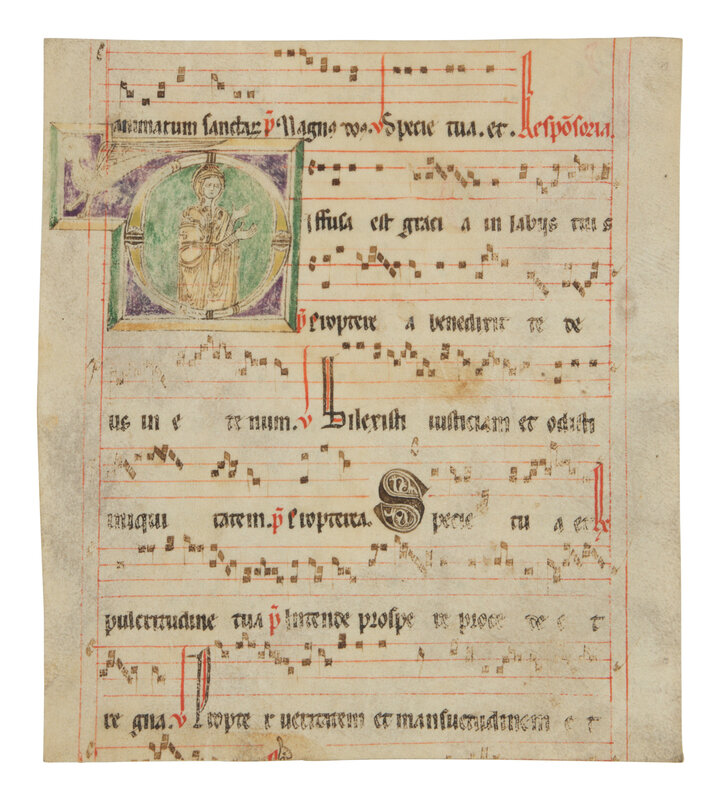 animarum sanctarum p̄ Magna vox. v Specie tua. et. Respōsoria.
Diffusa est graci a in labijs tuis
p̄ Propter e a benedixit te de
us in e ternum. v Dilexisti iusticiam et odisti
iniqui tatem. p̄ Propterea. Specie tu a et R
pulcritudine tua p̄ Intende prospe re proce de e t
re gna. v Propte r veritatem et mansuetudinem e t